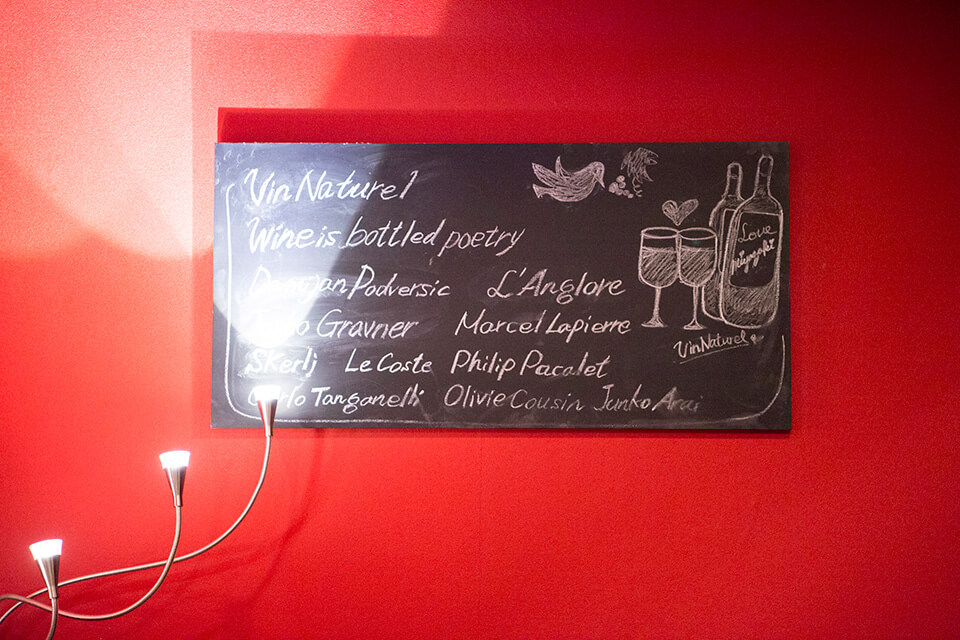 Vin Naturel
Wine is bottled poetry
Damijan Podversic L'Anglore
Gravner Marcel Lapierre
Skerlj Le Coste Philip Pacalet
Carlo Tanganelli Olivie Cousin Junko Arai
Love
Miyazaki
Vin Naturel